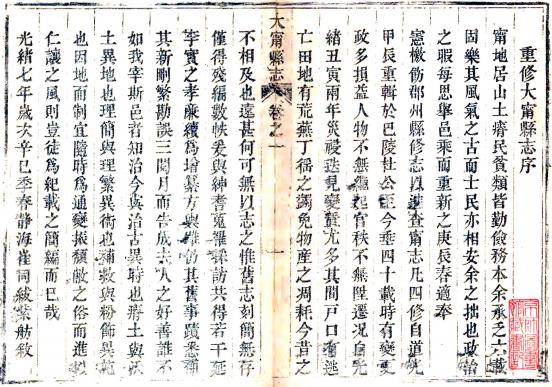 重修大甯縣志序
甯地居山土瘠民貧類皆勤儉務本余承乏六載
固樂其風氣之古而士民亦相安余之拙也政治
之暇每思舉邑乘而重新之庚辰春適奉
憲檄飭郡州縣修志以進查甯志凡四修自道光
甲辰重輯於巴陵杜公至今垂四十載時有變更
政多損益人物不無繼起官秩不無陞遷況自光
緒丑寅兩年災祲迭見變蠶尤多其間戶口有逃
亡田地有荒蕪丁徭之蠲免物產之凋耗今昔之
不相及也遠甚何可無以志之惟舊志刻簡無存
僅得殘編數帙爰與紳耆蒐羅採訪共得若干延
李賓之孝廉續為增纂方與
其新刪繁勘誤三閱月而告成夫人之好善誰不
如我宰斯邑者知治今與治古異時也瘠土與沃
土異地也理簡與理繁異術也補救與粉飾異
也因地而制宜隨時為通變振頹敝之俗而進
仁讓之風則豈徒為紀載之簡編而已哉
光緒七年歲次辛巳季春靜海崔同紱紫舫敘
大甯縣志
卷之一
一